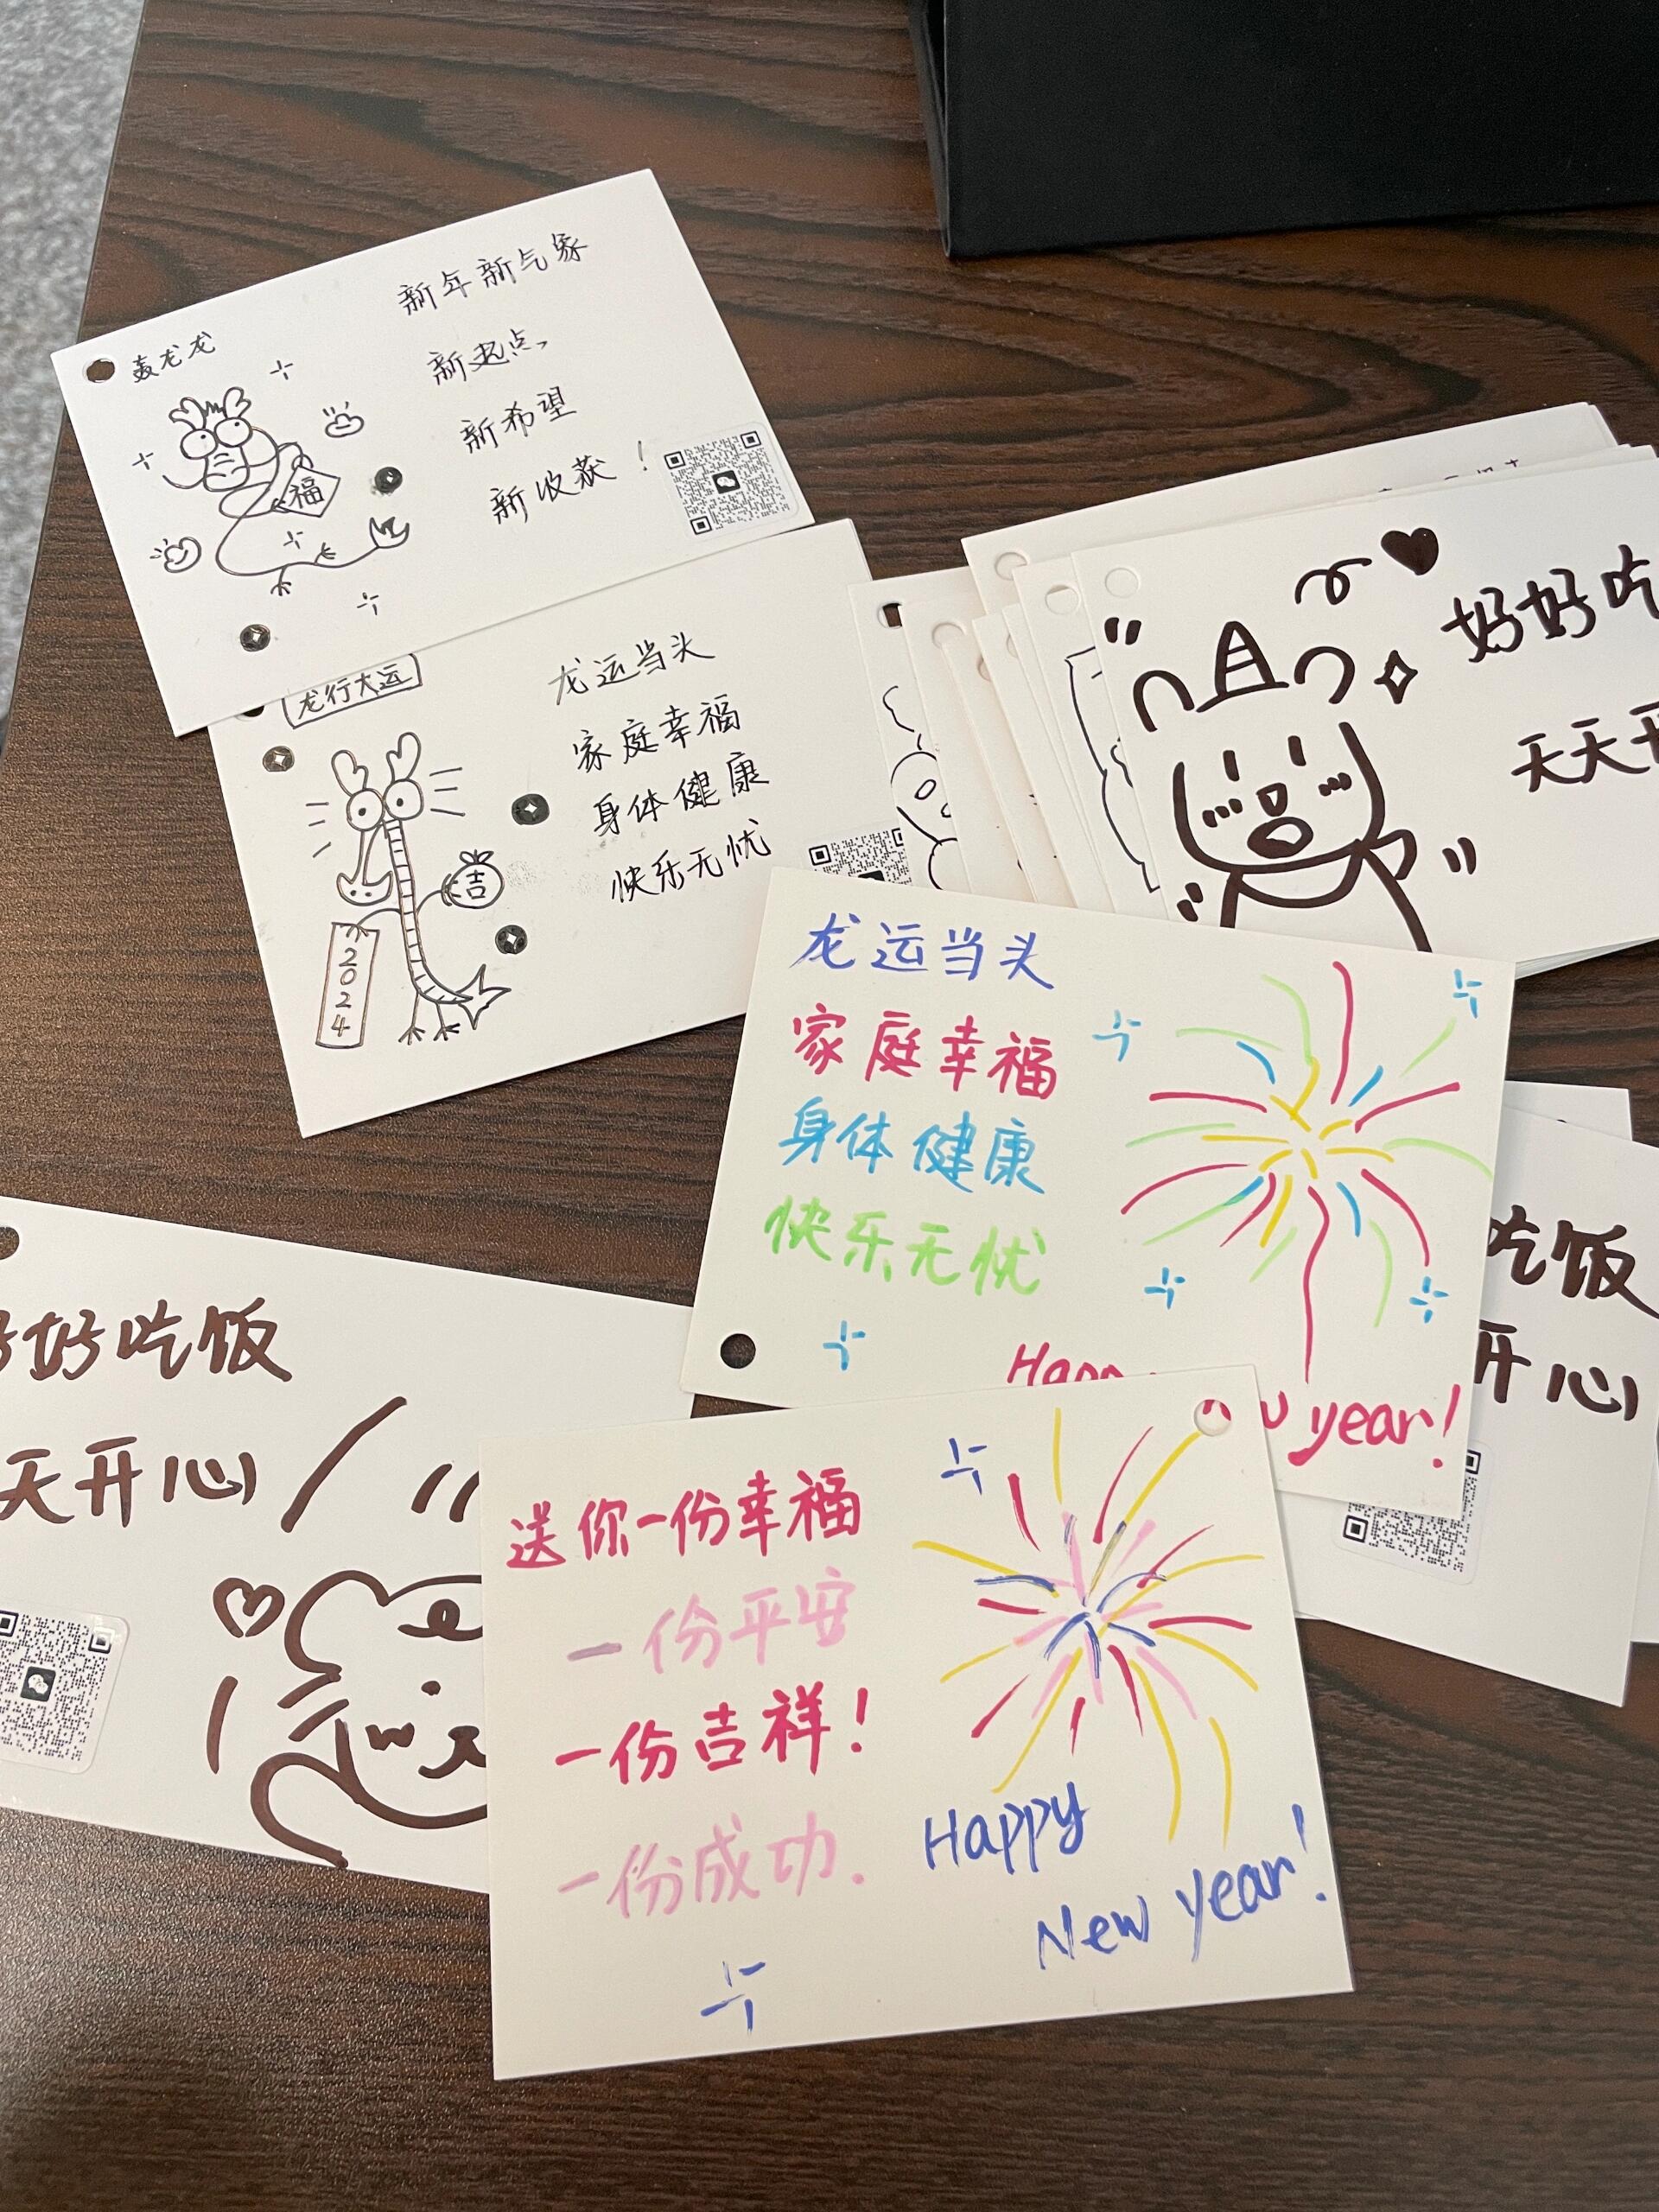 新年新气象
轰龙龙
新起点,
新希望
新收获!
福
龙行大运
龙运当头
家庭幸福
身体健康
快乐无忧
吉
2024
好好吃
天天开
龙运当头
家庭幸福
身体健康
快乐无忧
year!
吃饭
开心
好吃饭
天开心
送你一份幸福
一份平安
一份吉祥!
一份成功.
Happy
New year!